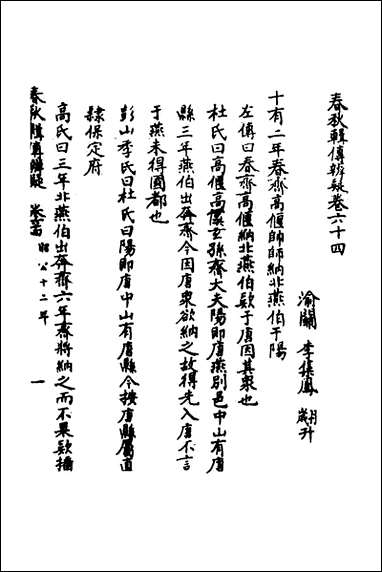 春秋輯傳辨疑卷六十四
渝關 李集鳳 翽升
十有二年春齊高偃帥師納北燕伯于陽
左傳曰春齊高偃納北燕伯欵于唐因其衆也
杜氏曰高偃高傒玄孫齊大夫陽即唐燕别邑中山有唐
縣三年燕伯出奔齊今因唐衆欲納之故得先入唐不言
于燕未得國都也
彭山季氏曰杜氏曰陽即唐中山有唐縣今按唐縣屬直
隸保定府
高氏曰三年北燕伯出奔齊六年齊將納之而不果欵播
春秋輯傳辨疑 卷 昭公十二年 一